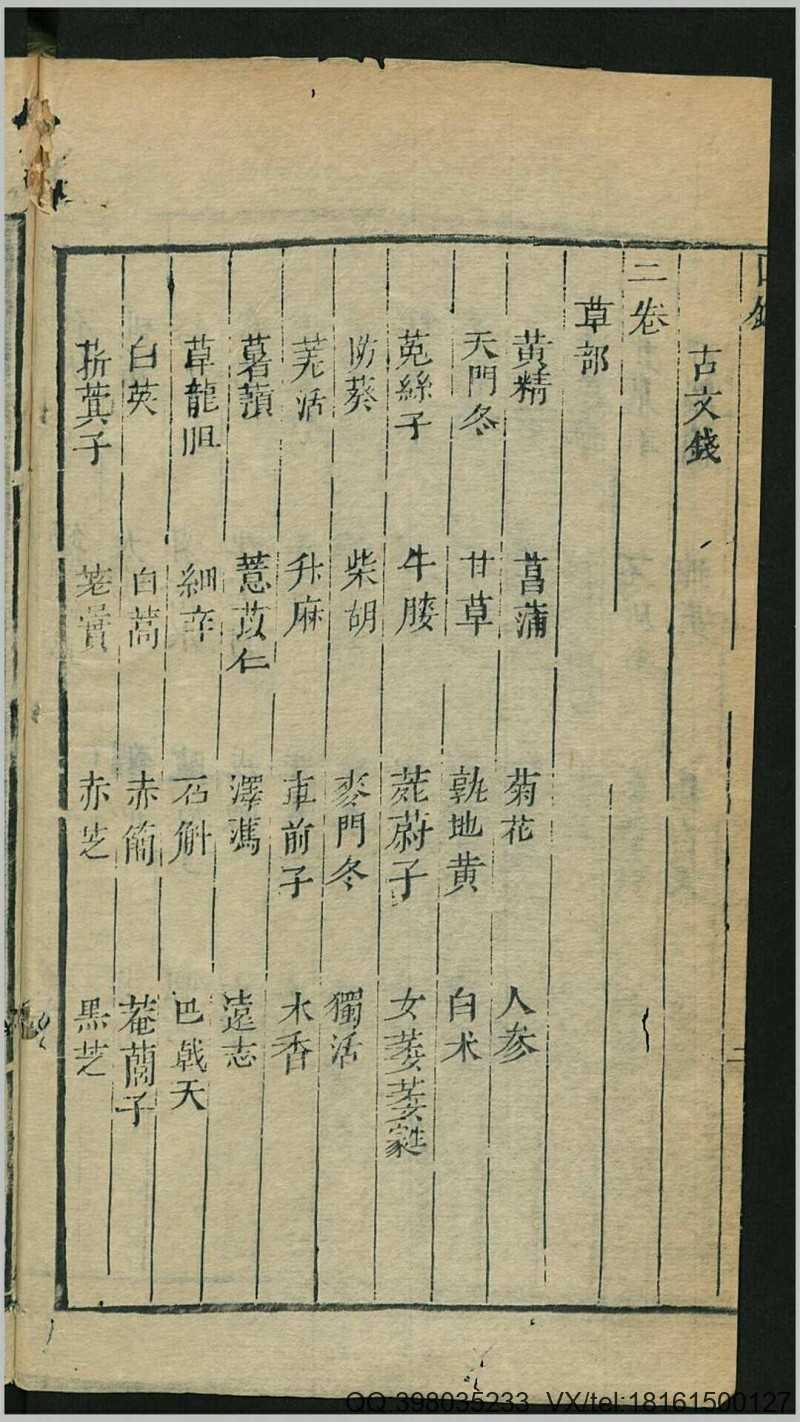 古文錢
二卷
草部
黃精 菖蒲 菊花 人参
天門冬 甘草 熟地黄 白术
菟絲子 牛膝 茺蔚子 女萎萎蕤
防葵 柴胡 麥門冬 獨活
羌活 升麻 車前子 木香
薯蕷 薏苡仁 澤瀉 遠志
草龍胆 細辛 石斛 巴戟天
白英 白蒿 赤箭 菴䕡子
菥蓂子 蓍實 赤芝 黑芝
二
QQ 398035233 VX/tel:18161500127